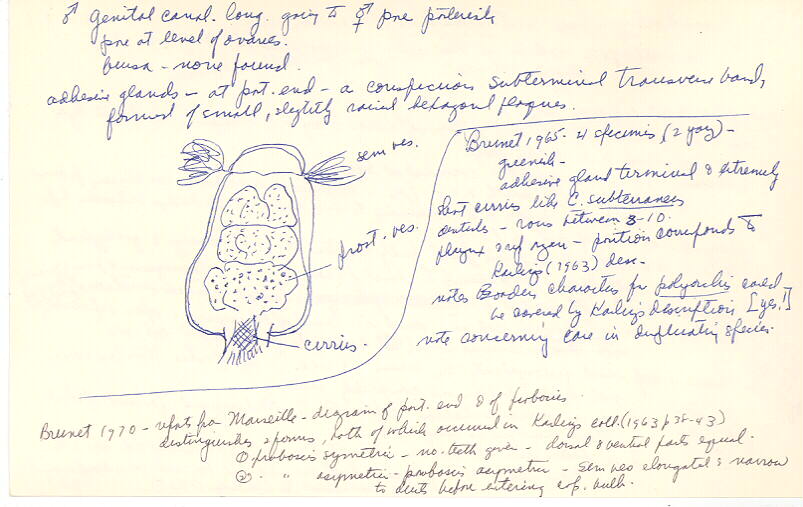 ♂ genital canal. long. going to ⚥ pore
pore at level of ovaries.
bursa - none found.
adhesive glands - at post. end - a conspicuous subterminal transverse band,
formed of small, slightly hexagonal plaques.
sem ves.
prost. ves.
cirrus.
Brunet 1965 - 4 specimens (2 yg) -
greenish -
adhesive gland terminal & extremely
short cirrus like C. subterraneus
denticles - rows between 8-10.
pharynx - position corresponds to
Karling's (1963) desc.
notes characters for polyorchis
be covered by Karling's description [yes!]
note concerning care in species.
Brunet 1970 - reports from Marseille - diagram of post. end & of proboscis
distinguishes 2 forms, both of which occurred in Karling's coll. (1963 p 38-43)
① proboscis symetric - no. teeth given - dorsal & ventral parts equal.
② " asymetric - proboscis asymetric - sem ves elongated & narrow
to ducts before entering cop. bulb.